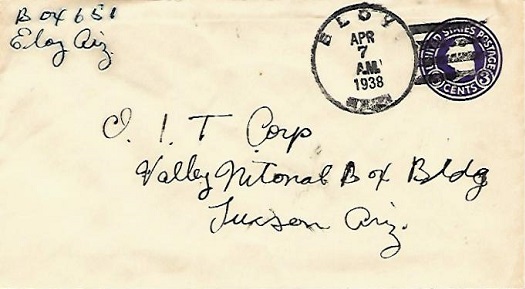 Box 651
Eloy Ariz.
ELOY
APR
7
A.M.
1938
ARIZ.
UNITED STATES POSTAGE
3 CENTS 3
C. I. T Corp
Valley Nitonal Box Bldg
Tucson Ariz.